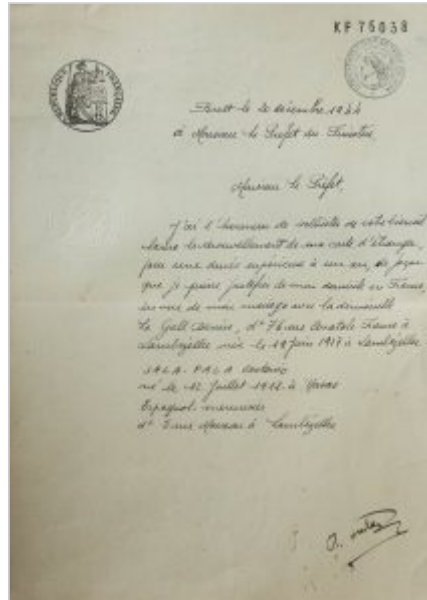 KF 75038
RÉPUBLIQUE FRANÇAISE
Brest le 20 décembre 1944
à Monsieur le Préfet du Finistère
Monsieur le Préfet,
J'ai l'honneur de solliciter de votre bienveil
lance le renouvellement de ma carte d'étranger,
pour une durée supérieure à un an, de façon
que je puisse justifier de mon domicile en France,
en vue de mon mariage avec la demoiselle
Le Gall Denise, dt 76 rue Anatole France à
Lambézellec née le 19 juin 1917 à Lambézellec
SALA-PALA Antonio
né le 12 Juillet 1912 à
Espagnol manœuvre
dt 5 rue à Lambézellec